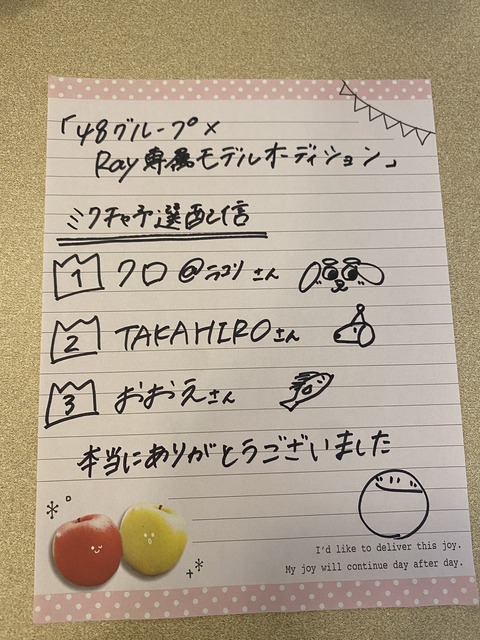 「48グループ×
Ray専属モデルオーディション」
ミクチャ予選配信
1 クロ@ラコリさん
2 TAKAHIROさん
3 おおえさん
本当にありがとうございました
I'd like to deliver this joy.
My joy will continue day after day.